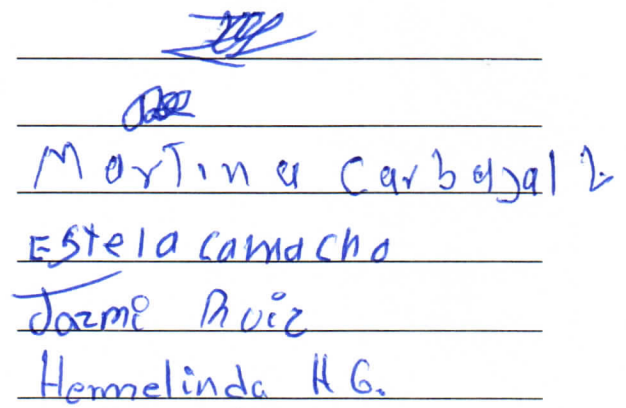 Martina Carbajal L.
Estela camacho
Jazmi Ruiz
Hermelinda H G.